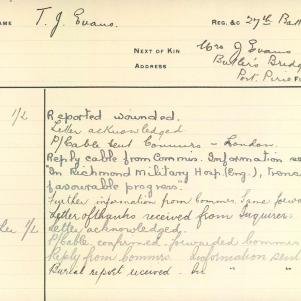 NAME T. J. Evans REG. &c 27th Batt
NEXT OF KIN Mrs J Evans
ADDRESS Butler's Bridge
Port Pirie
1/2 Reported wounded.
Letter acknowledged
P/Cable sent Commrs - London.
Reply cable from Commrs. Information
"In Richmond Military Hosp (Eng.),
favourable progress".
Further information from Commrs.
Letter of thanks received from Inquirers
1/2 Letter acknowledged.
P/Cable confirmed. forwarded Commrs
Reply from Commrs Information sent
Burial report received - " "